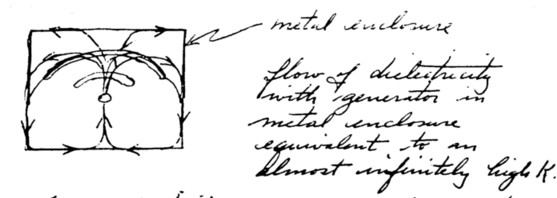 metal enclosure
flow of dielectricity
with generator in
metal enclosure
equivalent to an
almost infinitely high K.